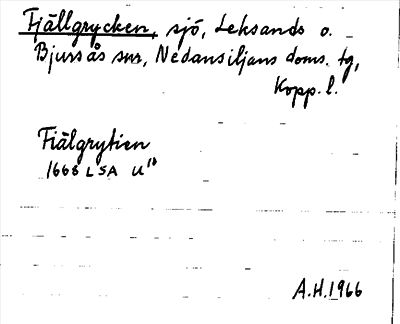 Fjällgrycken, sjö, Leksands o.
Bjursås snr, Nedansiljans doms. tg,
Kopp. l.
Fiälgrytien
1668 LSA U¹⁰
A.H. 1966